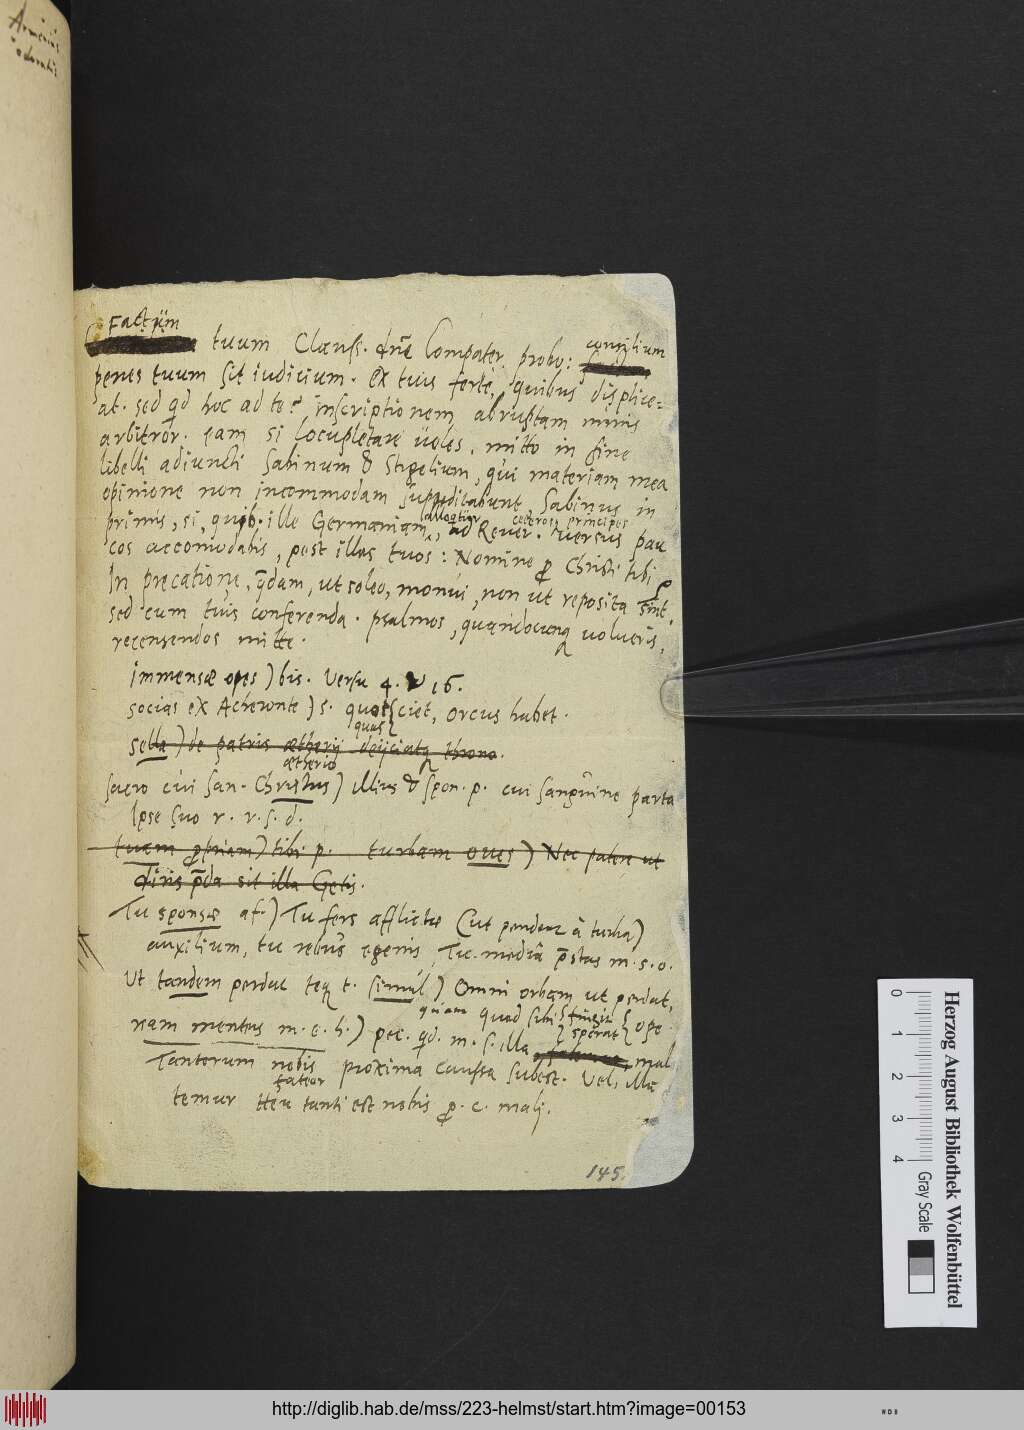 Armenius
odoratis
Factum
tuum Clariss. dne Compater, probo: consilium
penes tuum sit iudicium. ex tuis forte, quibus displice=
at. sed qd hoc ad te? inscriptionem abruptam nimis
arbitror. eam si locupletare voles, mitto in fine
libelli adiuncti Sabinum & Stigelium, qui materiam mea
opinione non incommodam suppeditabunt Sabinus in
primis, si, quib. ille Germaniam, ad Rever. ceteros principes versus pau
cos accomodabis, post illos tuos: Nomine Christi tibi
In precatione, qdam, ut soleo, monui, non ut reposita sint,
sed cum tuis conferenda. psalmos, quandocunq volueris,
recensendos mitte.
immensæ opes) bis. versu 4. 16.
socias ex Acheronte) s. quot sciet, Orcus habet.
quas
sella) de patris ætherij deijciatq throno.
ætherio
sacro cui san. Christus) illius & spon. p. cui sanguine parta
Ipse suo r. r. s. d.
tuam propriam) tibi p. turbam oves) Nec patere ut
diris pda sit illa Getis.
Tu sponsæ af.) Tu fers afflictæ (ut pendent à turba)
auxilium, tu rebus egenis, Tu media pstas m. s. o.
Ut tandem perdat teq t. simul) Omni orbam ut perdat,
quam quod sibi fingit
nam mentes m. c. h.) pec. qd. m. s. illa sperat ope
Tantorum nobis proxima caussa subest. Vel, illa mal
fateor
temur tanti est nobis p. c. malj.
145.
Herzog August Bibliothek Wolfenbüttel
0 1 2 3 4
Gray Scale
http://diglib.hab.de/mss/223-helmst/start.htm?image=00153
WDB